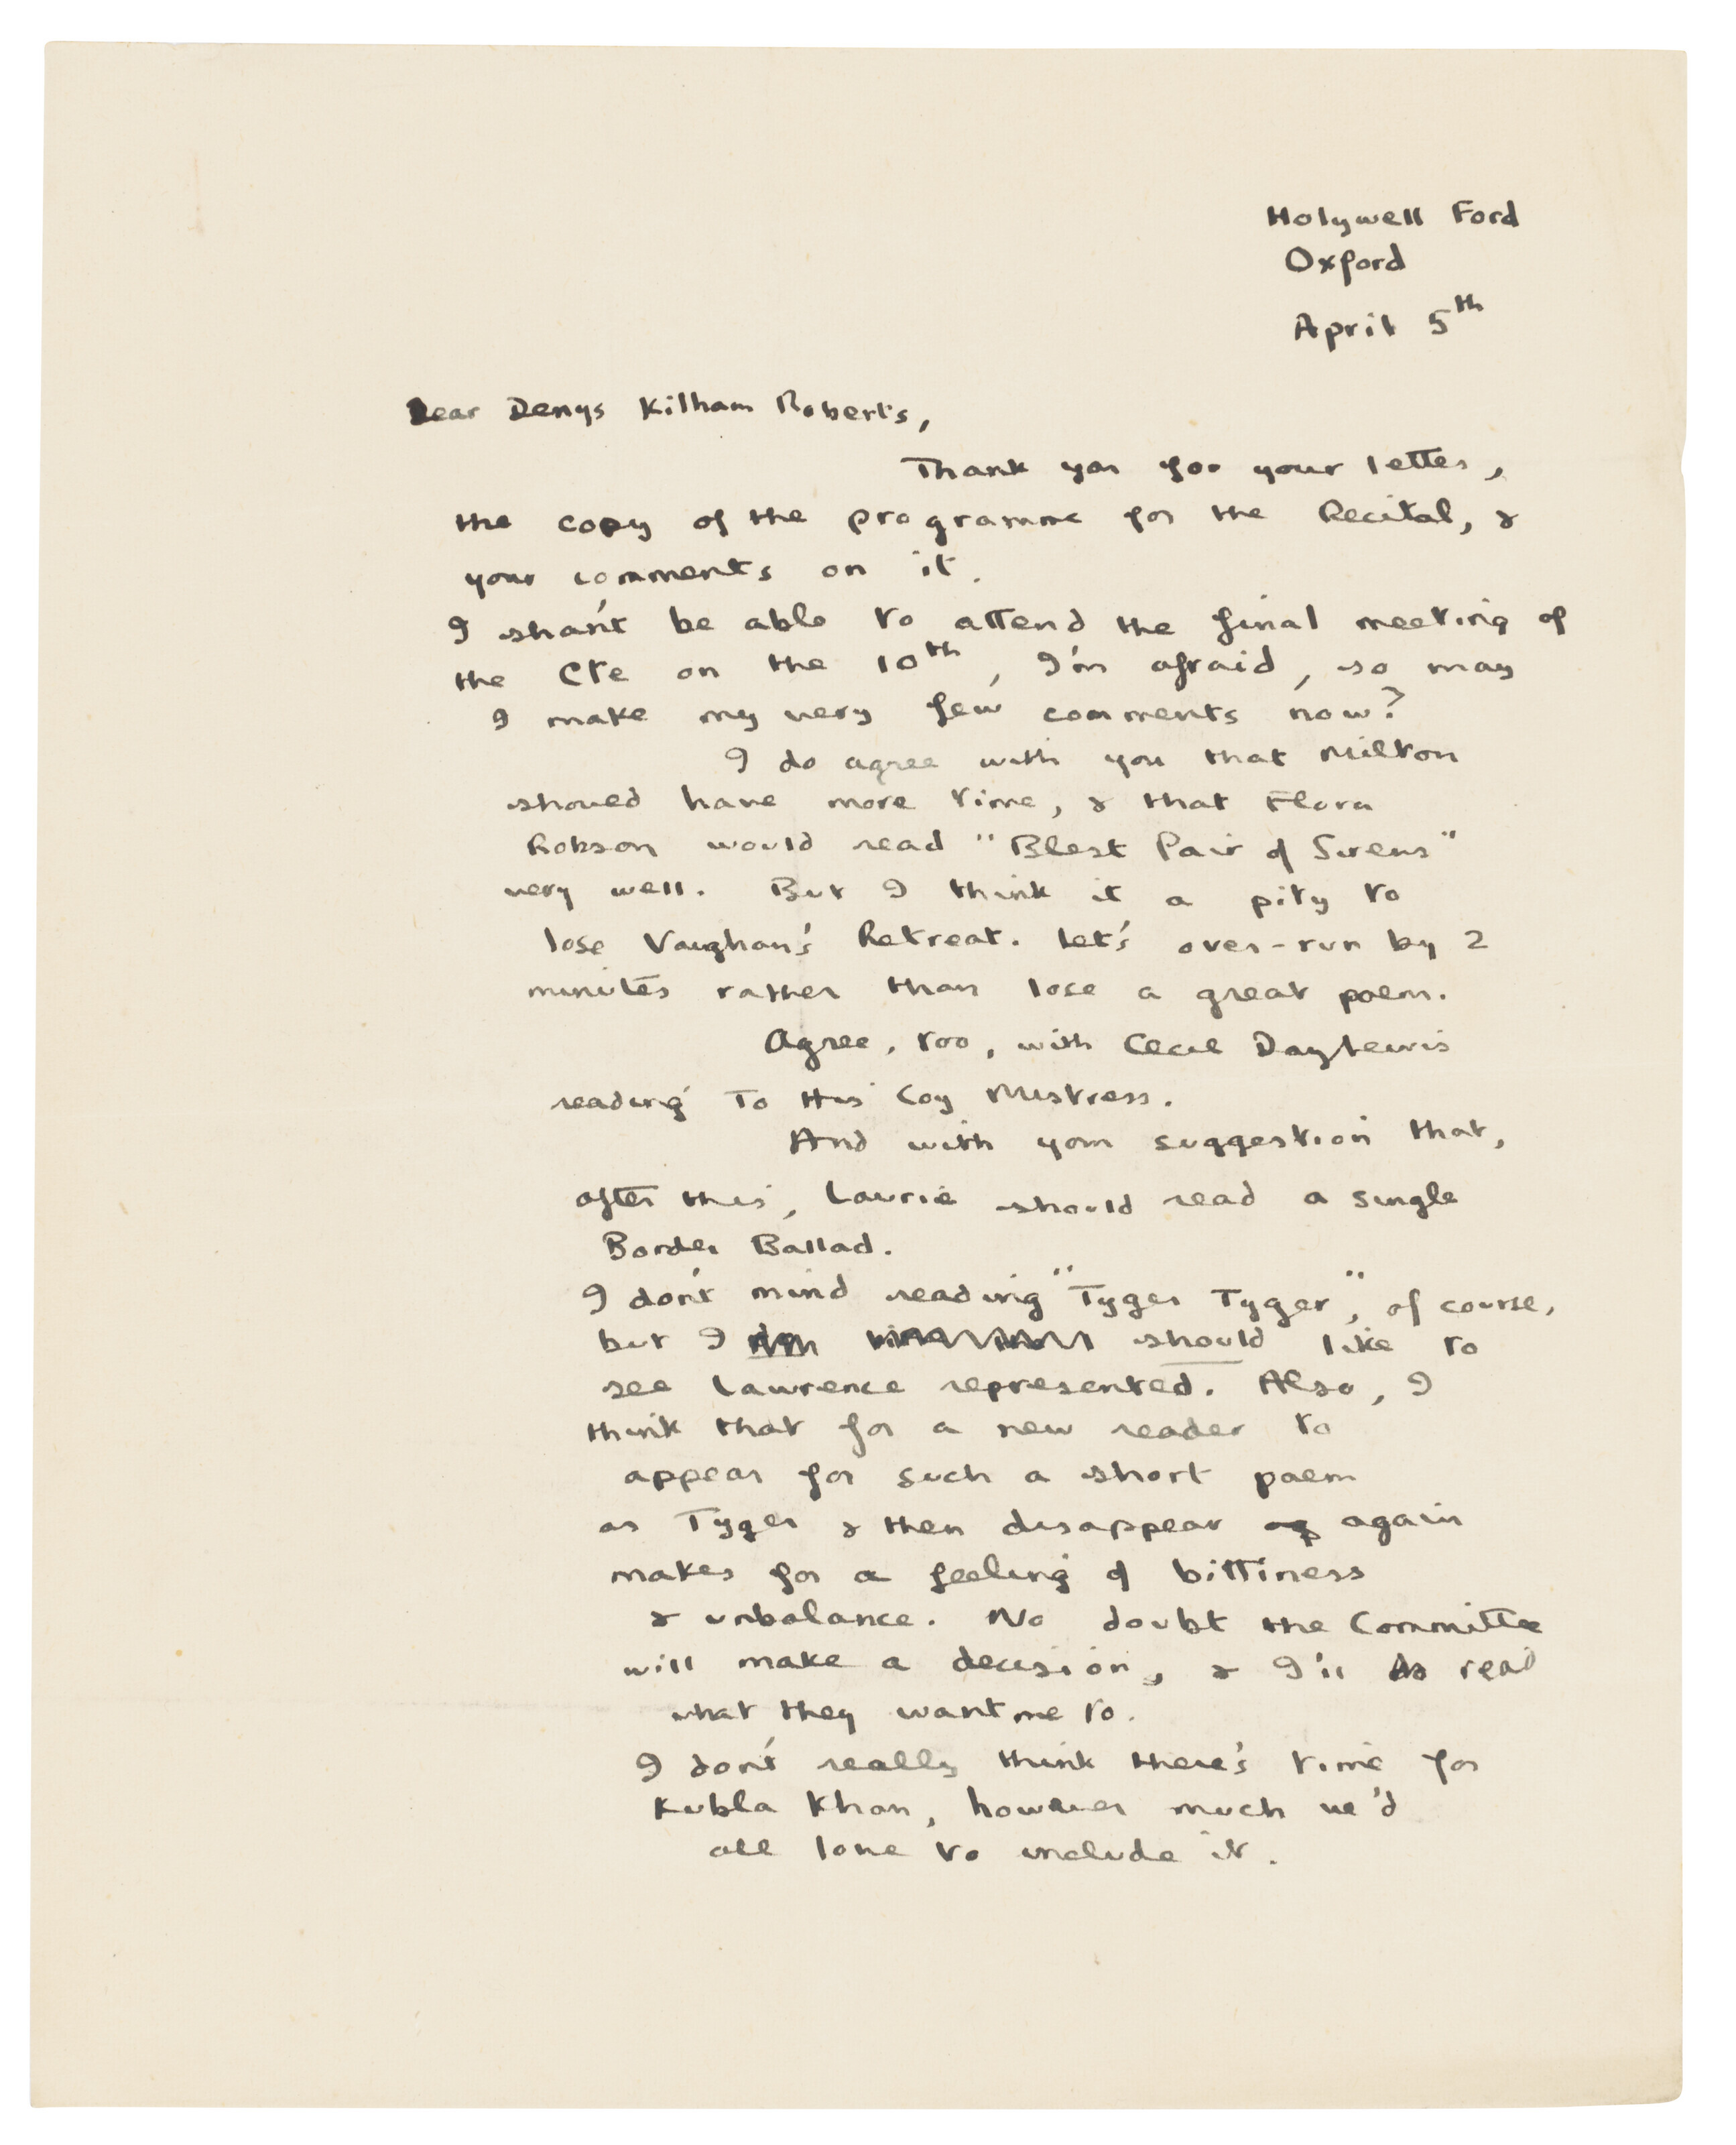 Holywell Ford
Oxford
April 5th
Dear Denys Kilham Roberts,
Thank you for your letter,
the copy of the programme for the Recital, &
your comments on it.
I shan't be able to attend the final meeting of
the Cte on the 10th, I'm afraid, so may
I make my very few comments now?
I do agree with you that Milton
should have more time, & that Flora
Robson would read "Blest Pair of Sirens"
very well. But I think it a pity to
lose Vaughan's Retreat. Let's over-run by 2
minutes rather than lose a great poem.
Agree, too, with Cecil Day Lewis
reading To His Coy Mistress.
And with your suggestion that,
after this, Laurie should read a single
Border Ballad.
I don't mind reading "Tyger Tyger", of course,
but I should like to
see Lawrence represented. Also, I
think that for a new reader to
appear for such a short poem
as Tyger & then disappear again
makes for a feeling of bittiness
& unbalance. No doubt the Committee
will make a decision, & I'll read
what they want me to.
I don't really think there's time for
Kubla Khan, however much we'd
all love to include it.